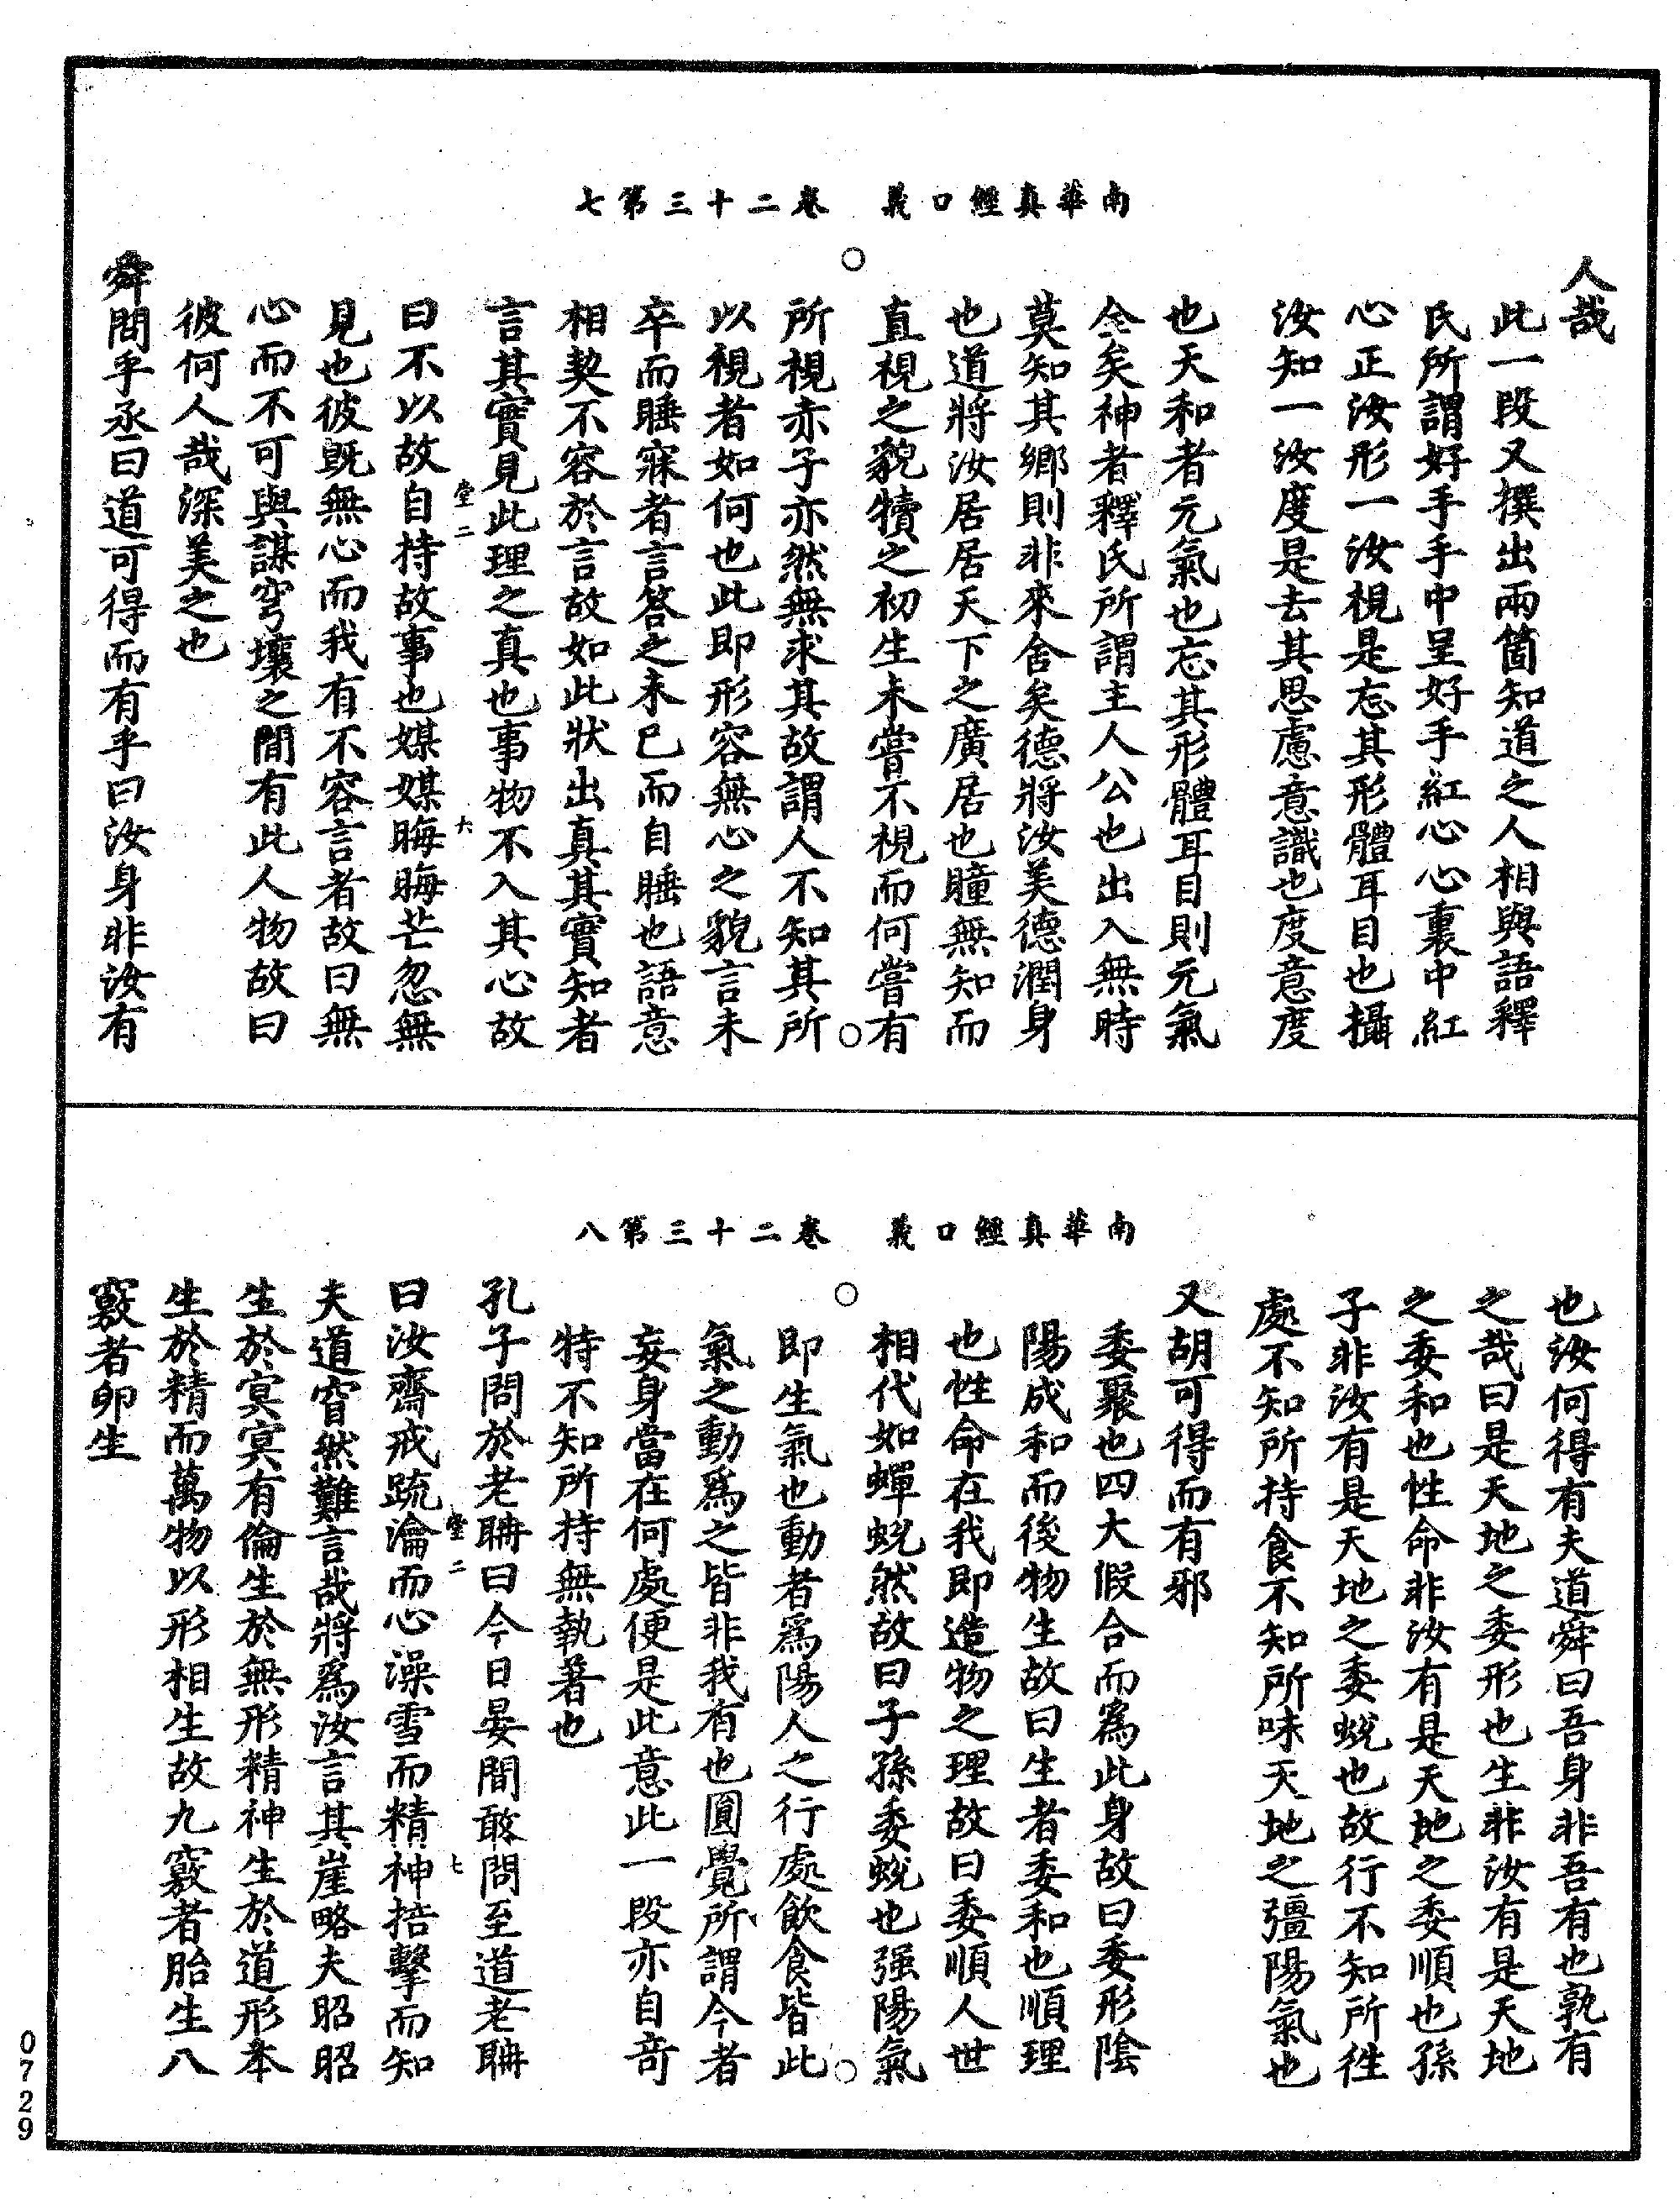 南華真經口義　卷二十三第七
人哉
此一段又撰出兩箇知道之人相與語釋
氏所謂好手手中呈好手紅心心裏中紅
心正汝形一汝視是忘其形體耳目也攝
汝知一汝度是去其思慮意識也度意度
也天和者元氣也忘其形體耳目則元氣
全矣神者釋氏所謂主人公也出入無時
莫知其鄉則非來舍矣德將汝美德潤身
也道將汝居居天下之廣居也瞳無知而
直視之貌犢之初生未嘗不視而何嘗有
所視赤子亦然無求其故謂人不知其所
以視者如何也此即形容無心之貌言未
卒而睡寐者言答之未已而自睡也語意
相契不容於言故如此狀出真其實知者
言其實見此理之真也事物不入其心故
堂二　六
曰不以故自持故事也媒媒晦晦芒忽無
見也彼既無心而我有不容言者故曰無
心而不可與謀穹壤之間有此人物故曰
彼何人哉深美之也
舜問乎丞曰道可得而有乎曰汝身非汝有
南華真經口義　卷二十三第八
也汝何得有夫道舜曰吾身非吾有也孰有
之哉曰是天地之委形也生非汝有是天地
之委和也性命非汝有是天地之委順也孫
子非汝有是天地之委蛻也故行不知所往
處不知所持食不知所味天地之彊陽氣也
又胡可得而有邪
委聚也四大假合而為此身故曰委形陰
陽成和而後物生故曰生者委和也順理
也性命在我即造物之理故曰委順人世
相代如蟬蛻然故曰子孫委蛻也强陽氣
即生氣也動者為陽人之行處飲食皆此
氣之動為之皆非我有也圓覺所謂今者
妄身當在何處便是此意此一段亦自奇
特不知所持無執著也
孔子問於老聃曰今日晏間敢問至道老聃
堂二　七
曰汝齋戒疏瀹而心澡雪而精神掊擊而知
夫道窅然難言哉將為汝言其崖略夫昭昭
生於冥冥有倫生於無形精神生於道形本
生於精而萬物以形相生故九竅者胎生八
竅者卵生
0729